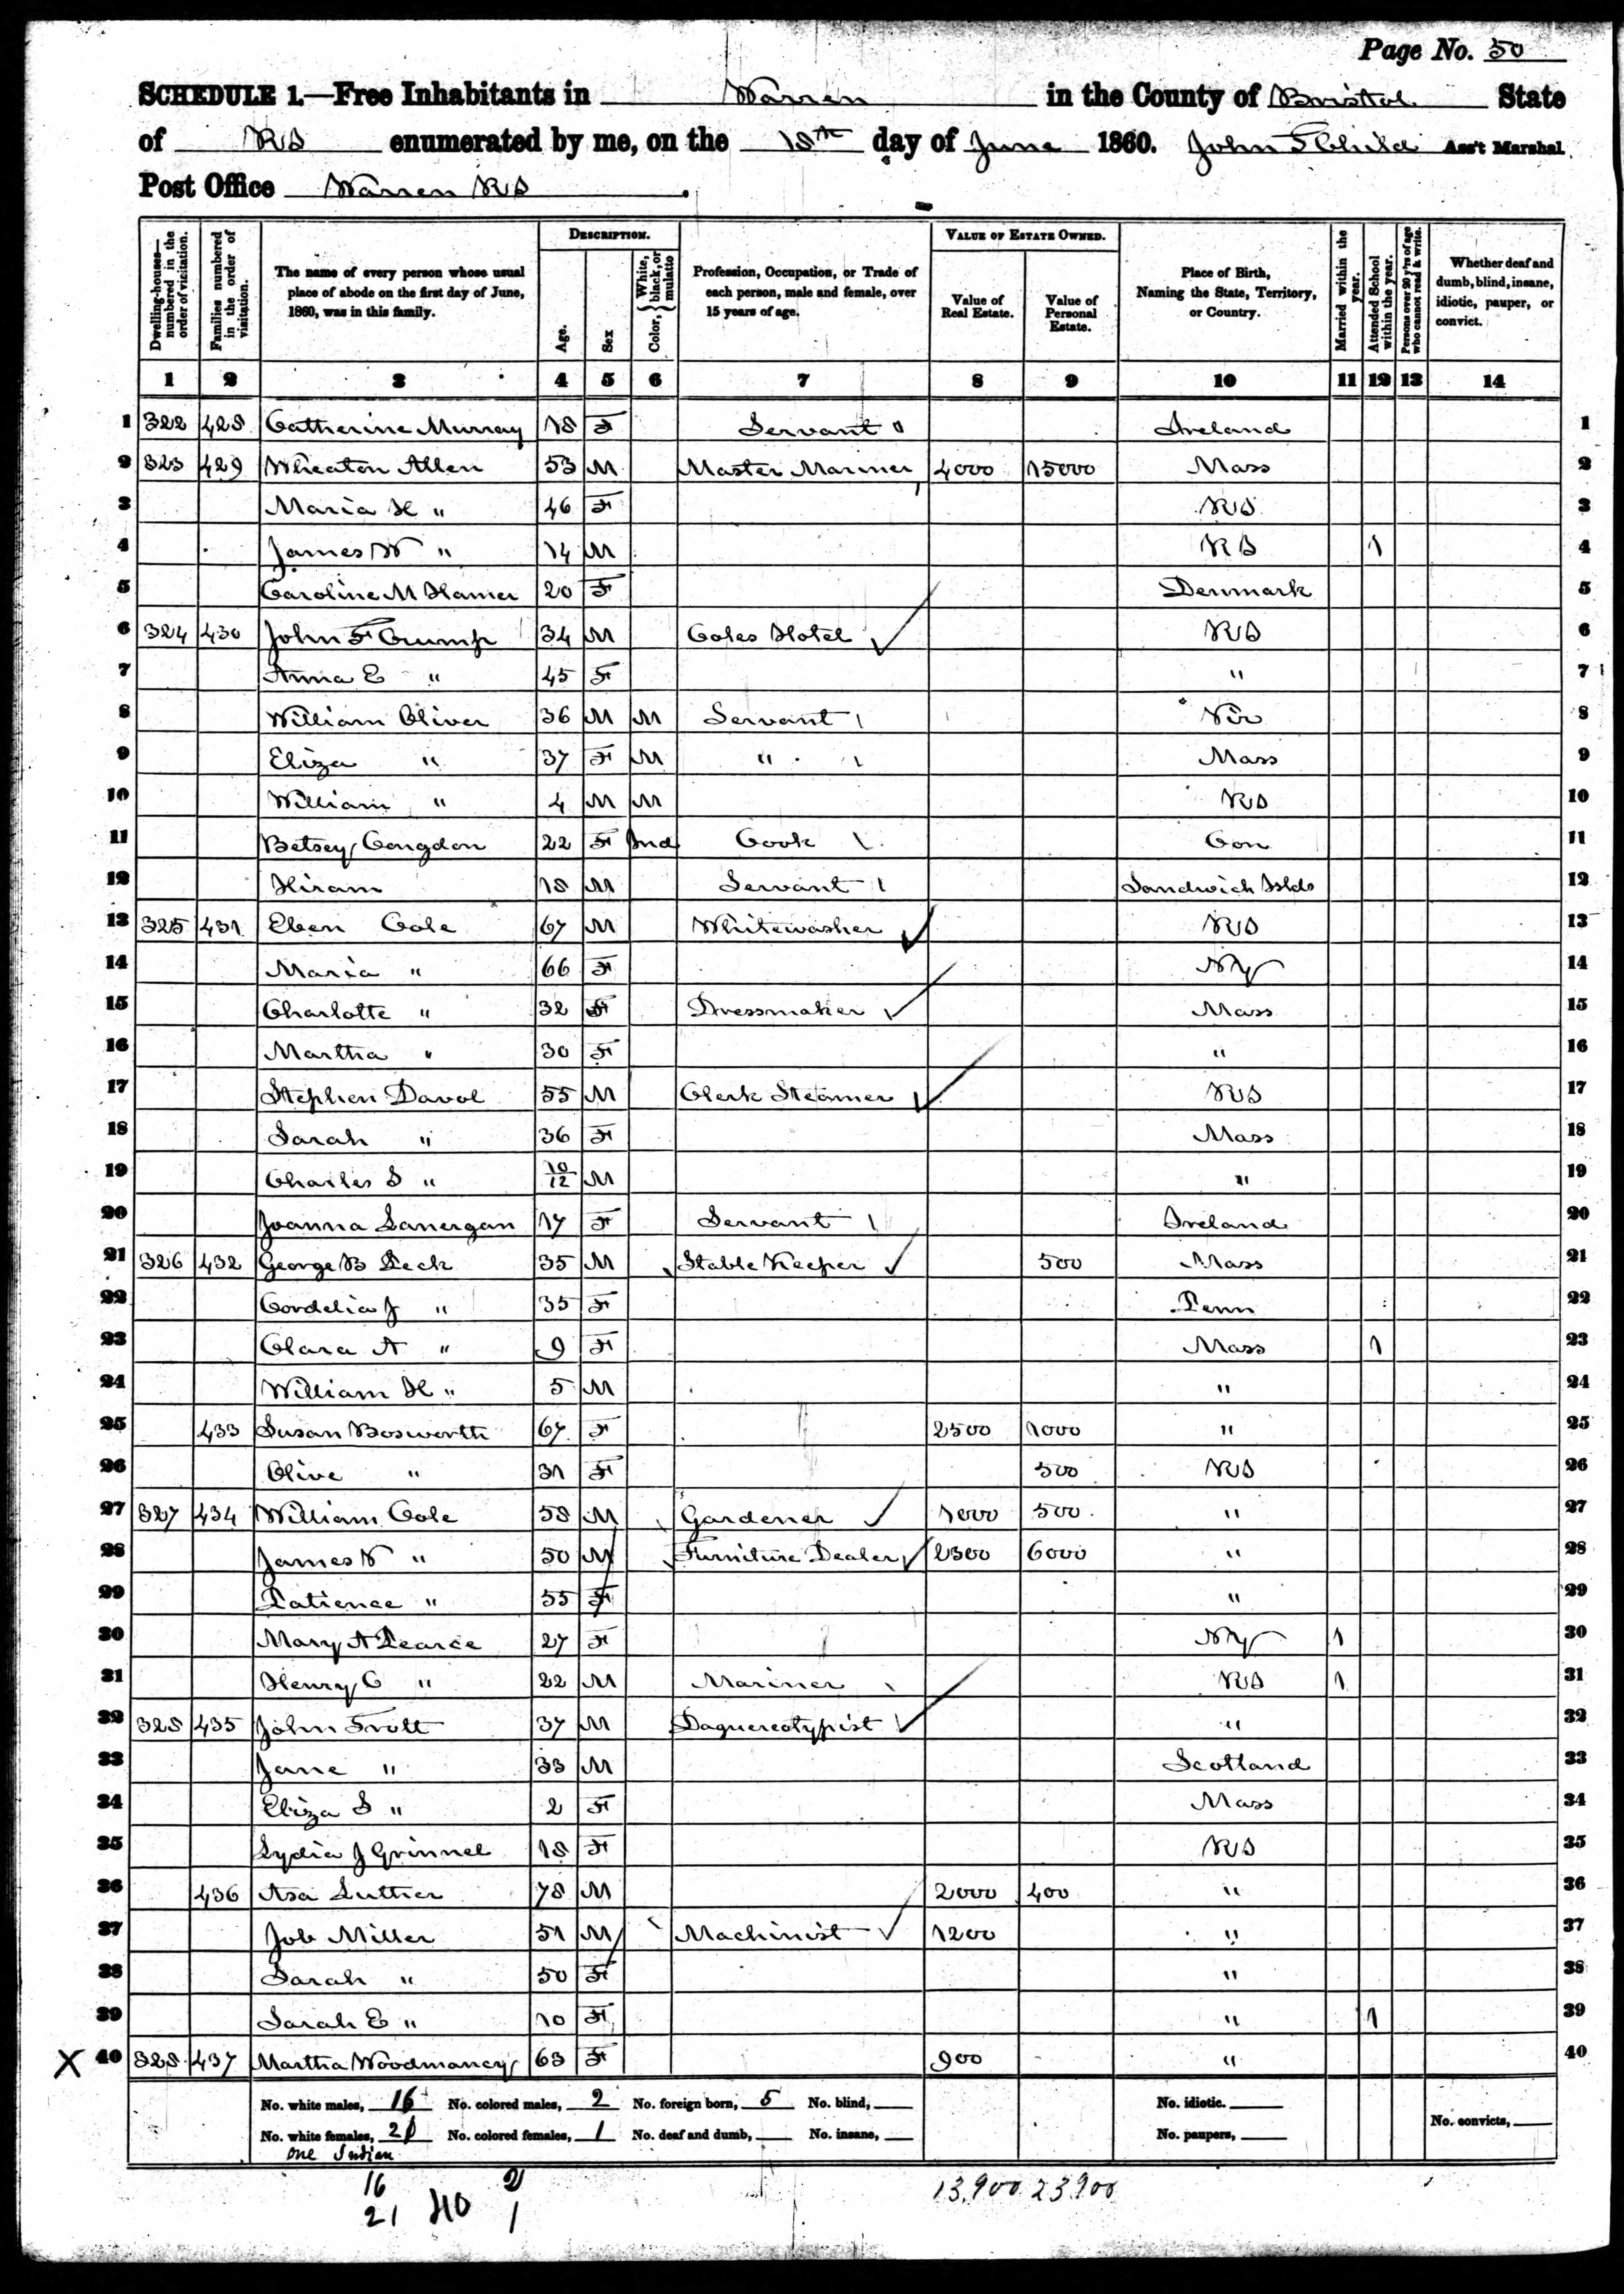 Page No. 50
SCHEDULE 1.—Free Inhabitants in Warren in the County of Bristol State
of RI enumerated by me, on the 18th day of June 1860. John F Child Ass't Marshal.
Post Office Warren RI.
Dwelling-houses—numbered in the order of visitation.
Families numbered in the order of visitation.
The name of every person whose usual place of abode on the first day of June, 1860, was in this family.
DESCRIPTION.
Age.
Sex
Color, { White, black, or mulatto
Profession, Occupation, or Trade of each person, male and female, over 15 years of age.
VALUE OF ESTATE OWNED.
Value of Real Estate.
Value of Personal Estate.
Place of Birth, Naming the State, Territory, or Country.
Married within the year.
Attended School within the year.
Persons over 20 y'rs of age who cannot read & write.
Whether deaf and dumb, blind, insane, idiotic, pauper, or convict.
1 2 3 4 5 6 7 8 9 10 11 12 13 14
1 322 428 Catherine Murray 18 F Servant " Ireland 1
2 323 429 Wheaton Allen 53 M Master Mariner 4000 15000 Mass 2
3 Maria H " 46 F RI 3
4 James W " 14 M RI 1 4
5 Caroline M Hamer 20 F Denmark 5
6 324 430 John F Crump 34 M Coles Hotel ✓ RI 6
7 Anna E " 45 F " 7
8 William Oliver 36 M M Servant Vir 8
9 Eliza " 37 F M " Mass 9
10 William " 4 M M RI 10
11 Betsey Congdon 22 F Ind Cook Con 11
12 Hiram 18 M Servant Sandwich Islds 12
13 325 431 Eben Cole 67 M Whitewasher ✓ RI 13
14 Maria " 66 F NY 14
15 Charlotte " 32 F Dressmaker ✓ Mass 15
16 Martha " 30 F " 16
17 Stephen Davol 55 M Clerk Steamer ✓ RI 17
18 Sarah " 36 F Mass 18
19 Charles S " 10/12 M " 19
20 Joanna Lanergan 17 F Servant Ireland 20
21 326 432 George B Peck 35 M Stable Keeper ✓ 500 Mass 21
22 Cordelia J " 35 F Penn 22
23 Clara A " 9 F Mass 1 23
24 William H " 5 M " 24
25 433 Susan Bosworth 67 F 2500 1000 " 25
26 Olive " 31 F 500 RI 26
27 327 434 William Cole 58 M Gardener ✓ 1000 500 " 27
28 James W " 50 M Furniture Dealer ✓ 2300 6000 " 28
29 Patience " 55 F " 29
30 Mary A Pearce 27 F NY 1 30
31 Henry C " 22 M Mariner RI 1 31
32 328 435 John Trott 37 M Daguereotypist ✓ " 32
33 Jane " 33 M Scotland 33
34 Eliza S " 2 F Mass 34
35 Lydia J Grinnel 18 F RI 35
36 436 Asa Luther 78 M 2000 400 " 36
37 Job Miller 51 M Machinist ✓ 1200 " 37
38 Sarah " 50 F " 38
39 Sarah E " 10 F " 1 39
X 40 328 437 Martha Woodmancy 63 F 900 " 40
No. white males, 16 No. colored males, 2 No. foreign born, 5 No. blind, No. idiotic.
No. white females, 21 No. colored females, 1 No. deaf and dumb, No. insane, No. paupers, No. convicts,
one Indian
16 2 13,900 23,900
21 40 1